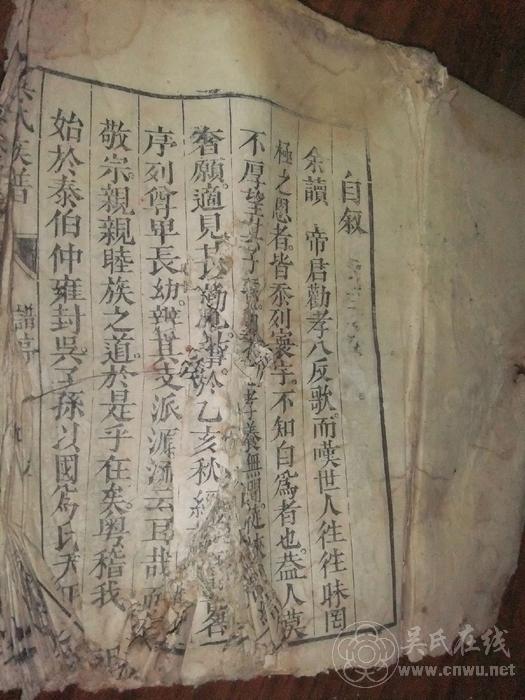 自叙
余讀 帝君勸孝八反歌而嘆世人徃徃昧罔
極之恩者皆忝列寰宇不知自為者也葢人莫
不厚望其子 孝養無
奢願適見 於乙亥秋
序列尊卑長幼辨其支派源流云耳哉而
敬宗親親睦族之道於是乎在矣粤稽我
始於泰伯仲雍封吳子孫以國為氏
吳氏族普
譜序
吴氏在线
www.cnwu.net